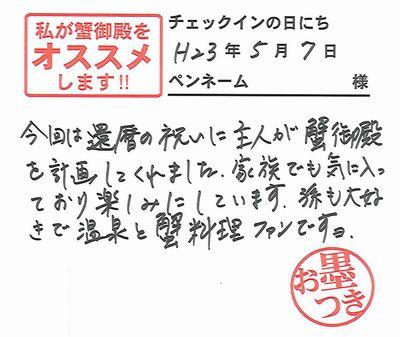 私が蟹御殿を
オススメ
します!!
チェックインの日にち
H23年5月7日
ペンネーム 様
今回は還暦の祝いに主人が蟹御殿
を計画してくれました。家族でも気に入っ
ており楽しみにしています。孫も大好
きで温泉と蟹料理ファンですヨ。
お墨つき